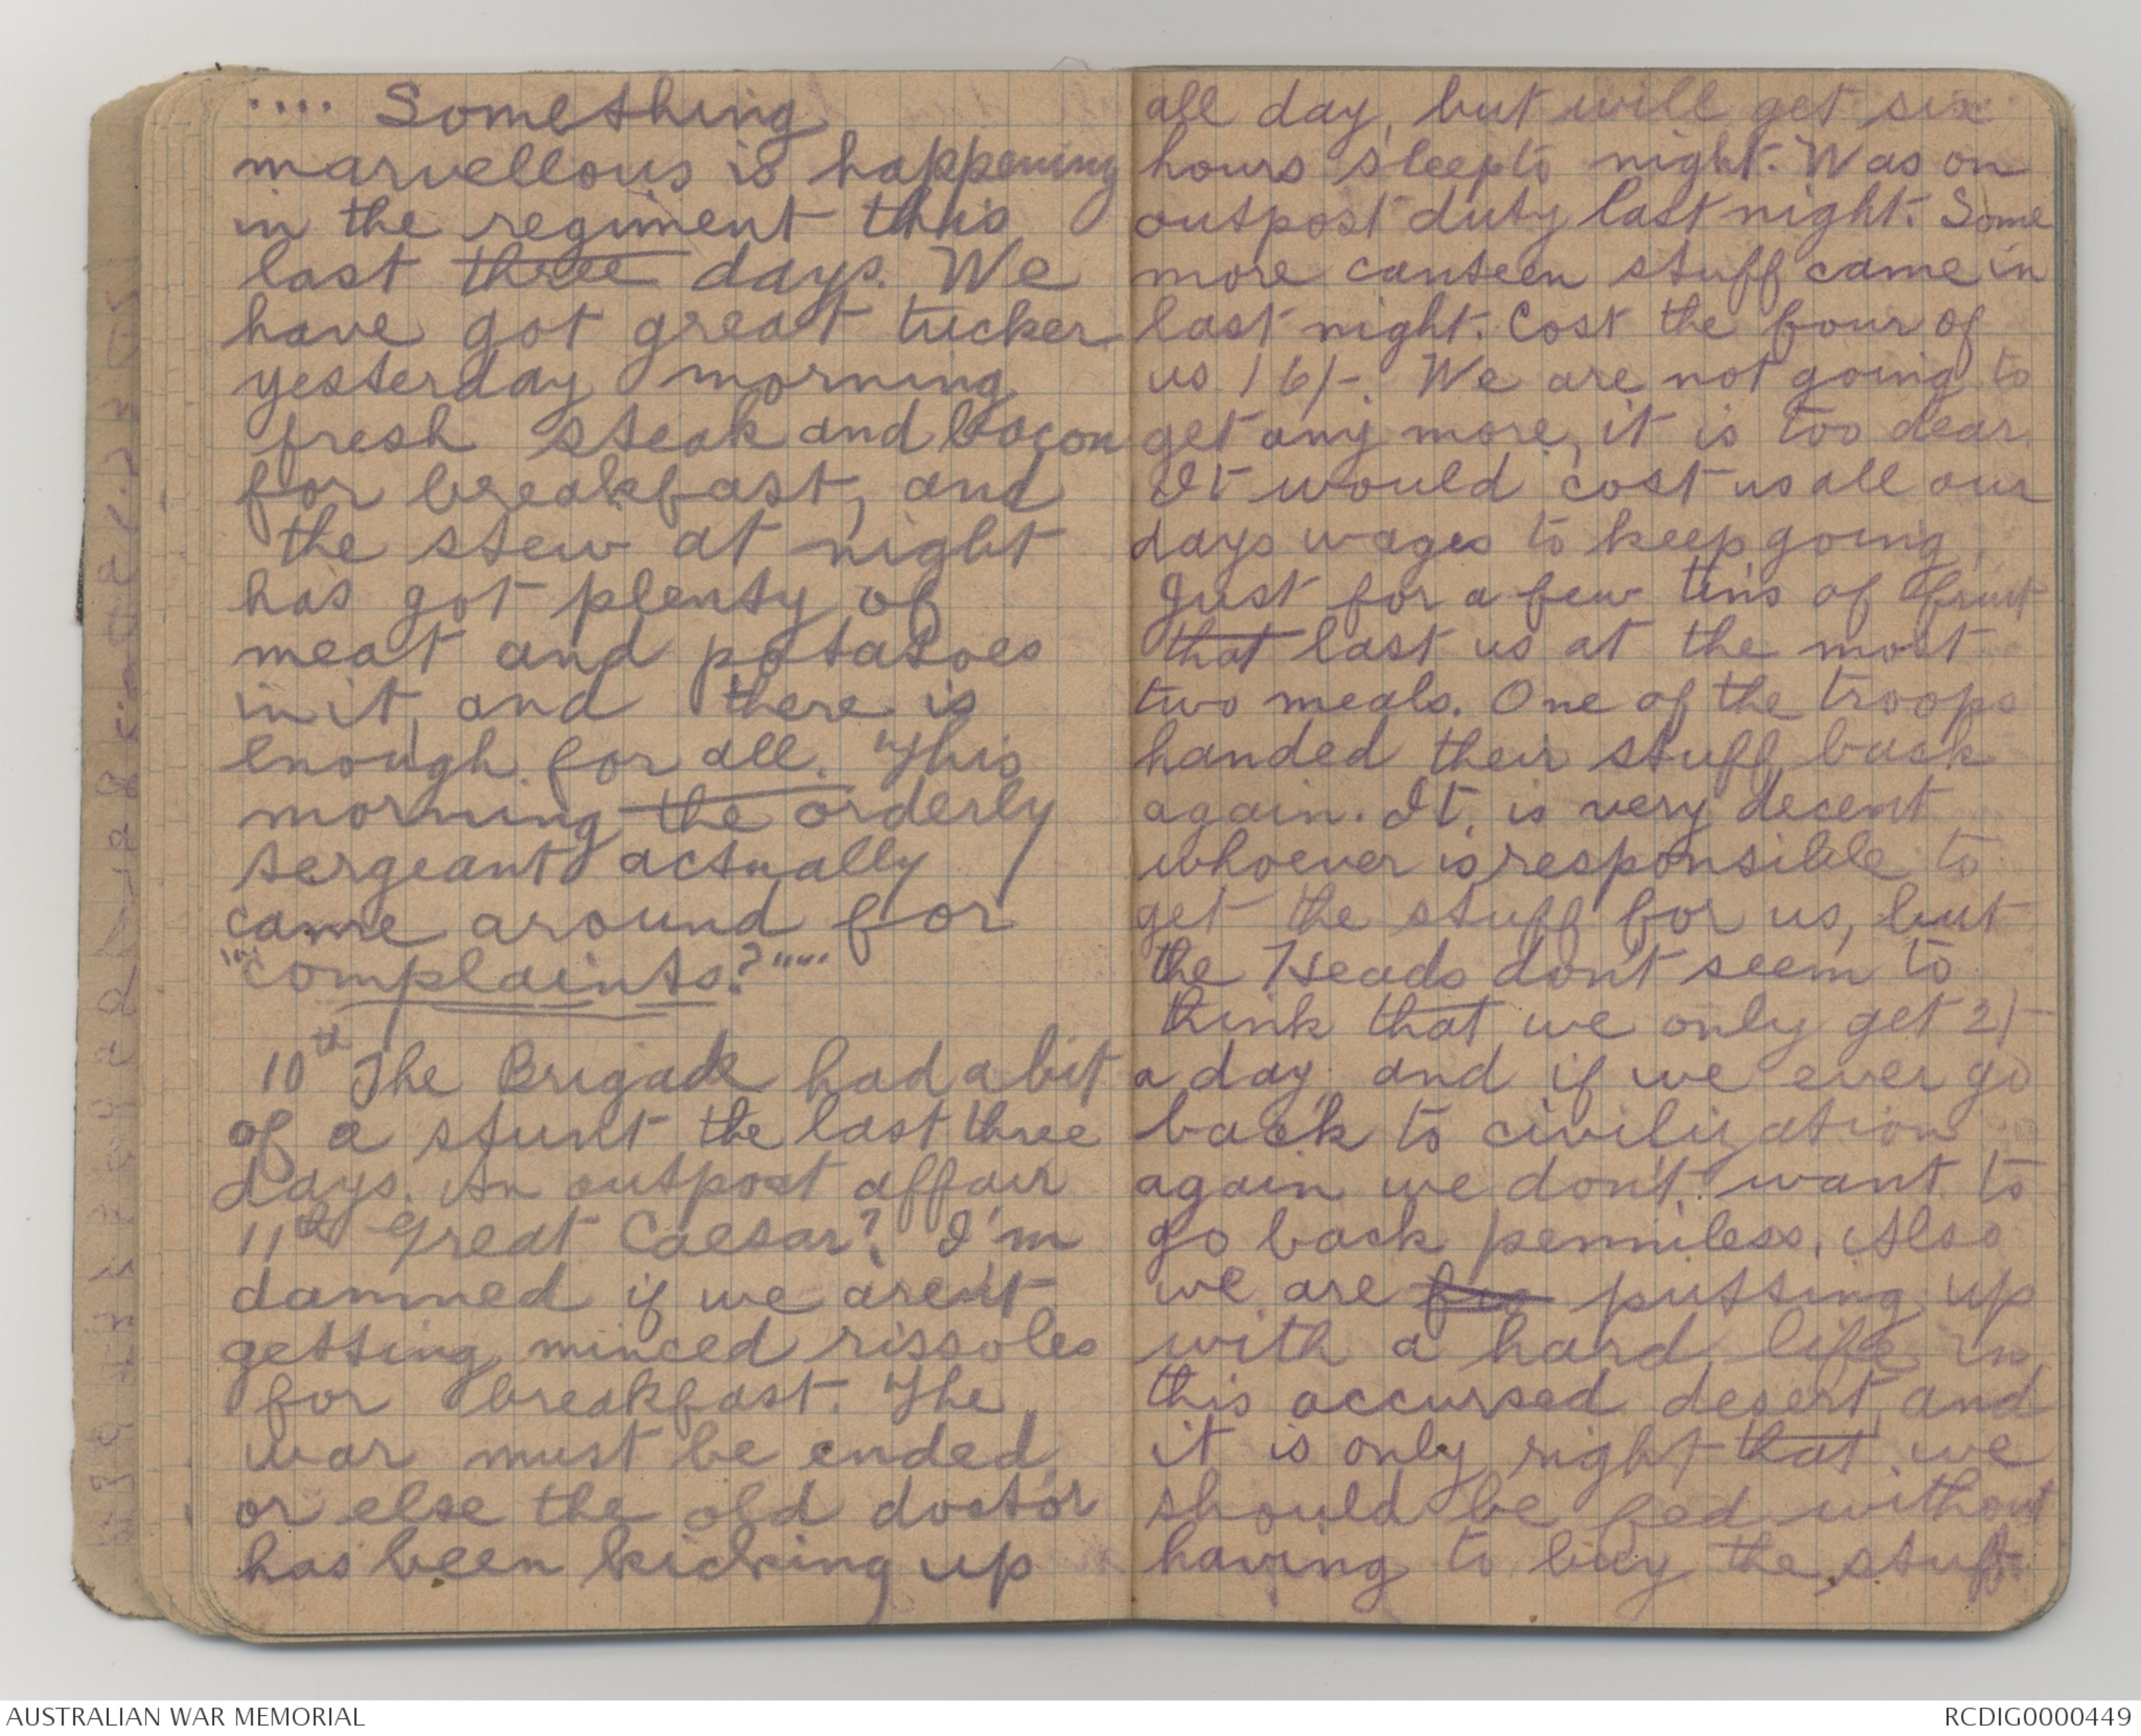 .... Something
marvellous is happening
in the regiment this
last three days. We
have got great tucker
yesterday morning
fresh steak and bacon
for breakfast, and
the stew at night
has got plenty of
meat and potatoes
in it, and there is
enough for all. This
morning the orderly
sergeant actually
came around for
""complaints?""
10th The Brigade had a bit
of a stunt the last three
days. An outpost affair
11th Great Caesar? I'm
damned if we aren't
getting minced rissoles
for breakfast. The
war must be ended,
or else the old doctor
has been kicking up
all day, but will get six
hours sleep to night. Was on
outpost duty last night. Some
more canteen stuff came in
last night. Cost the four of
us 16/-. We are not going to
get any more, it is too dear.
It would cost us all our
days wages to keep going,
Just for a few tins of fruit
that last us at the most
two meals. One of the troops
handed their stuff back
again. It is very decent
whoever is responsible to
get the stuff for us, but
the Heads don't seem to
think that we only get 2/-
a day, and if we ever go
back to civilization
again we don't want to
go back penniless. Also
we are putting up
with a hard life in
this accursed desert, and
it is only right that we
should be fed without
having to buy the stuff.
AUSTRALIAN WAR MEMORIAL
RCDIG0000449